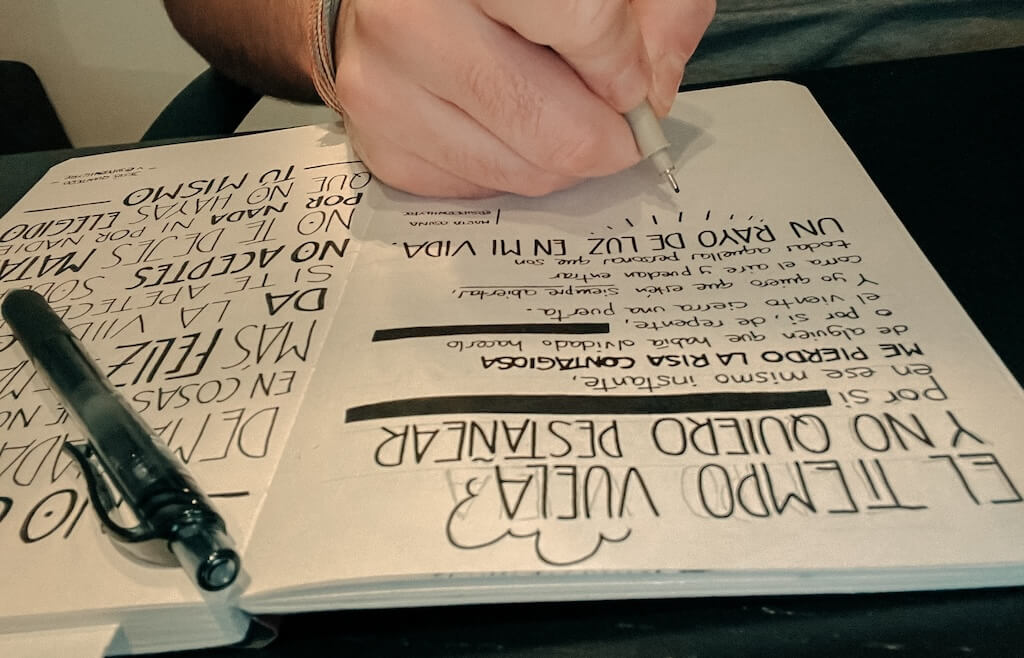 EL TIEMPO VUELA
Y NO QUIERO PESTAÑEAR
por si
en ese mismo instante,
ME PIERDO LA RISA CONTAGIOSA
de alguien que había olvidado hacerlo
o por si, de repente,
el viento cierra una puerta.
Y yo quiero que estén siempre abiertas,
corra el aire y puedan entrar
todas aquellas personas que son
UN RAYO DE LUZ EN MI VIDA.
MARTA OSUNA
NO
EN COSAS
MÁS FELIZ
DA LA VIIDA
SI TE APETECE
NO ACEPTES
NO TE DEJES MATA
POR NADA NI POR NADIE
QUE NO HAYAS ELEGIDO
TÚ MISMO